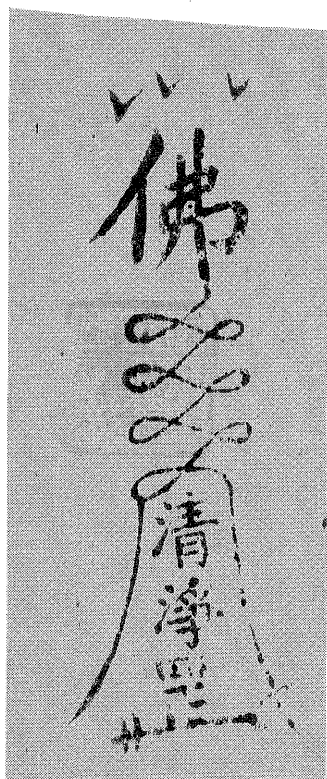 佛清淨